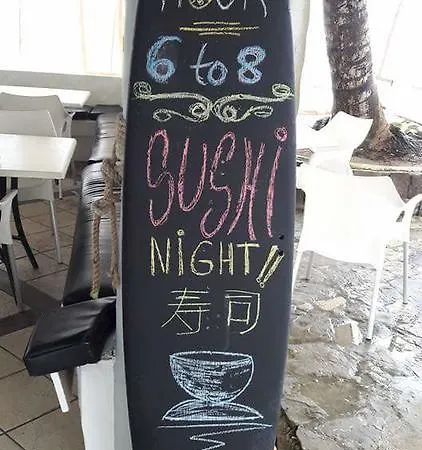 HOUR
6 to 8
SUSHi
NiGHT!!
寿司